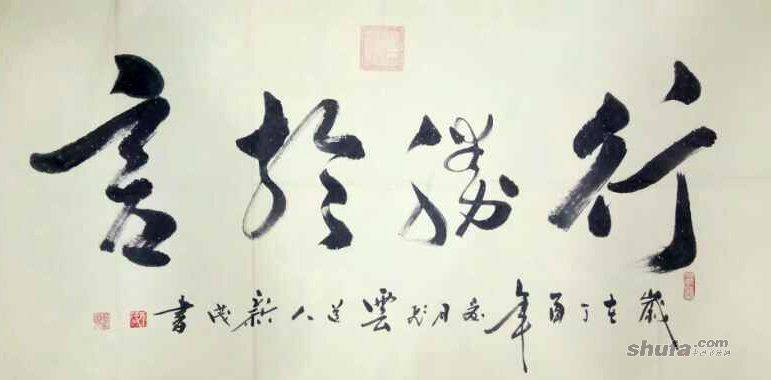 行勝於言
歲在丁酉年 月 雲道人新茂書
shufa.com